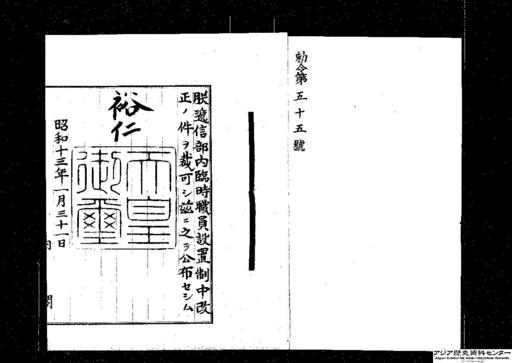 勅令第五十五號
朕遞信部內臨時職員設置制中改
正ノ件ヲ裁可シ茲ニ之ヲ公布セシム
裕仁
天皇
御璽
昭和十三年一月三十一日
アジア歴史資料センター
Japan Center for Asian Historical Records